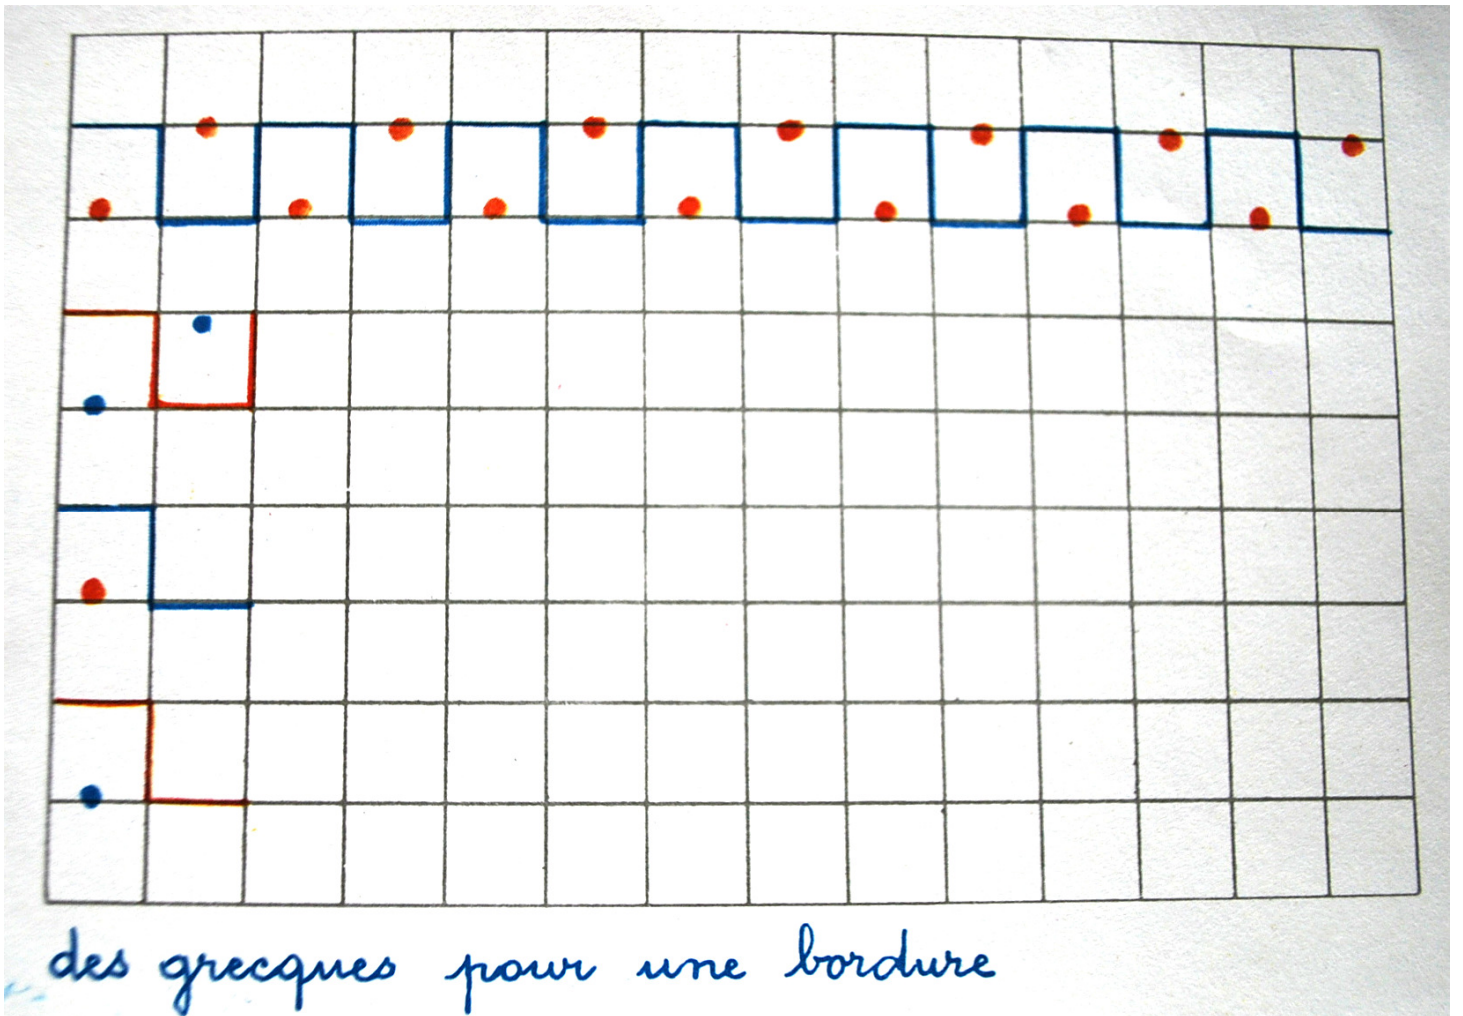 des grecques pour une bordure